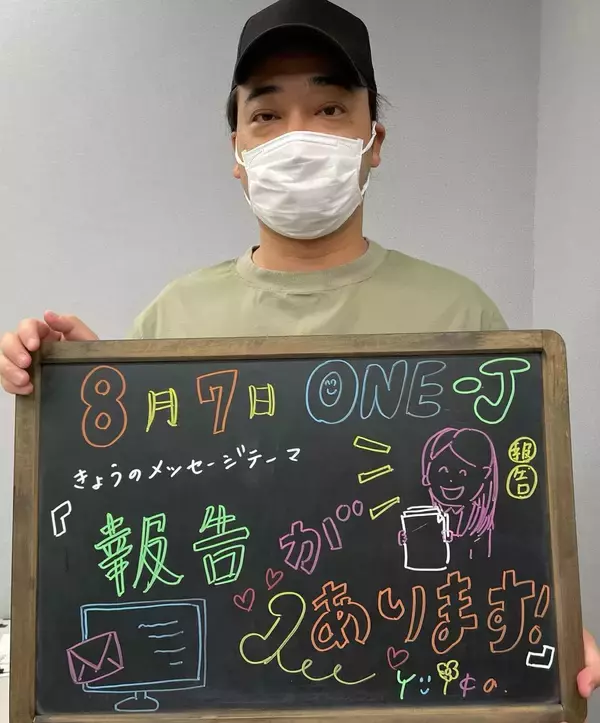 8月7日 ONE-J
きょうのメッセージテーマ
報告
『報告が
あります!』
Yuika.